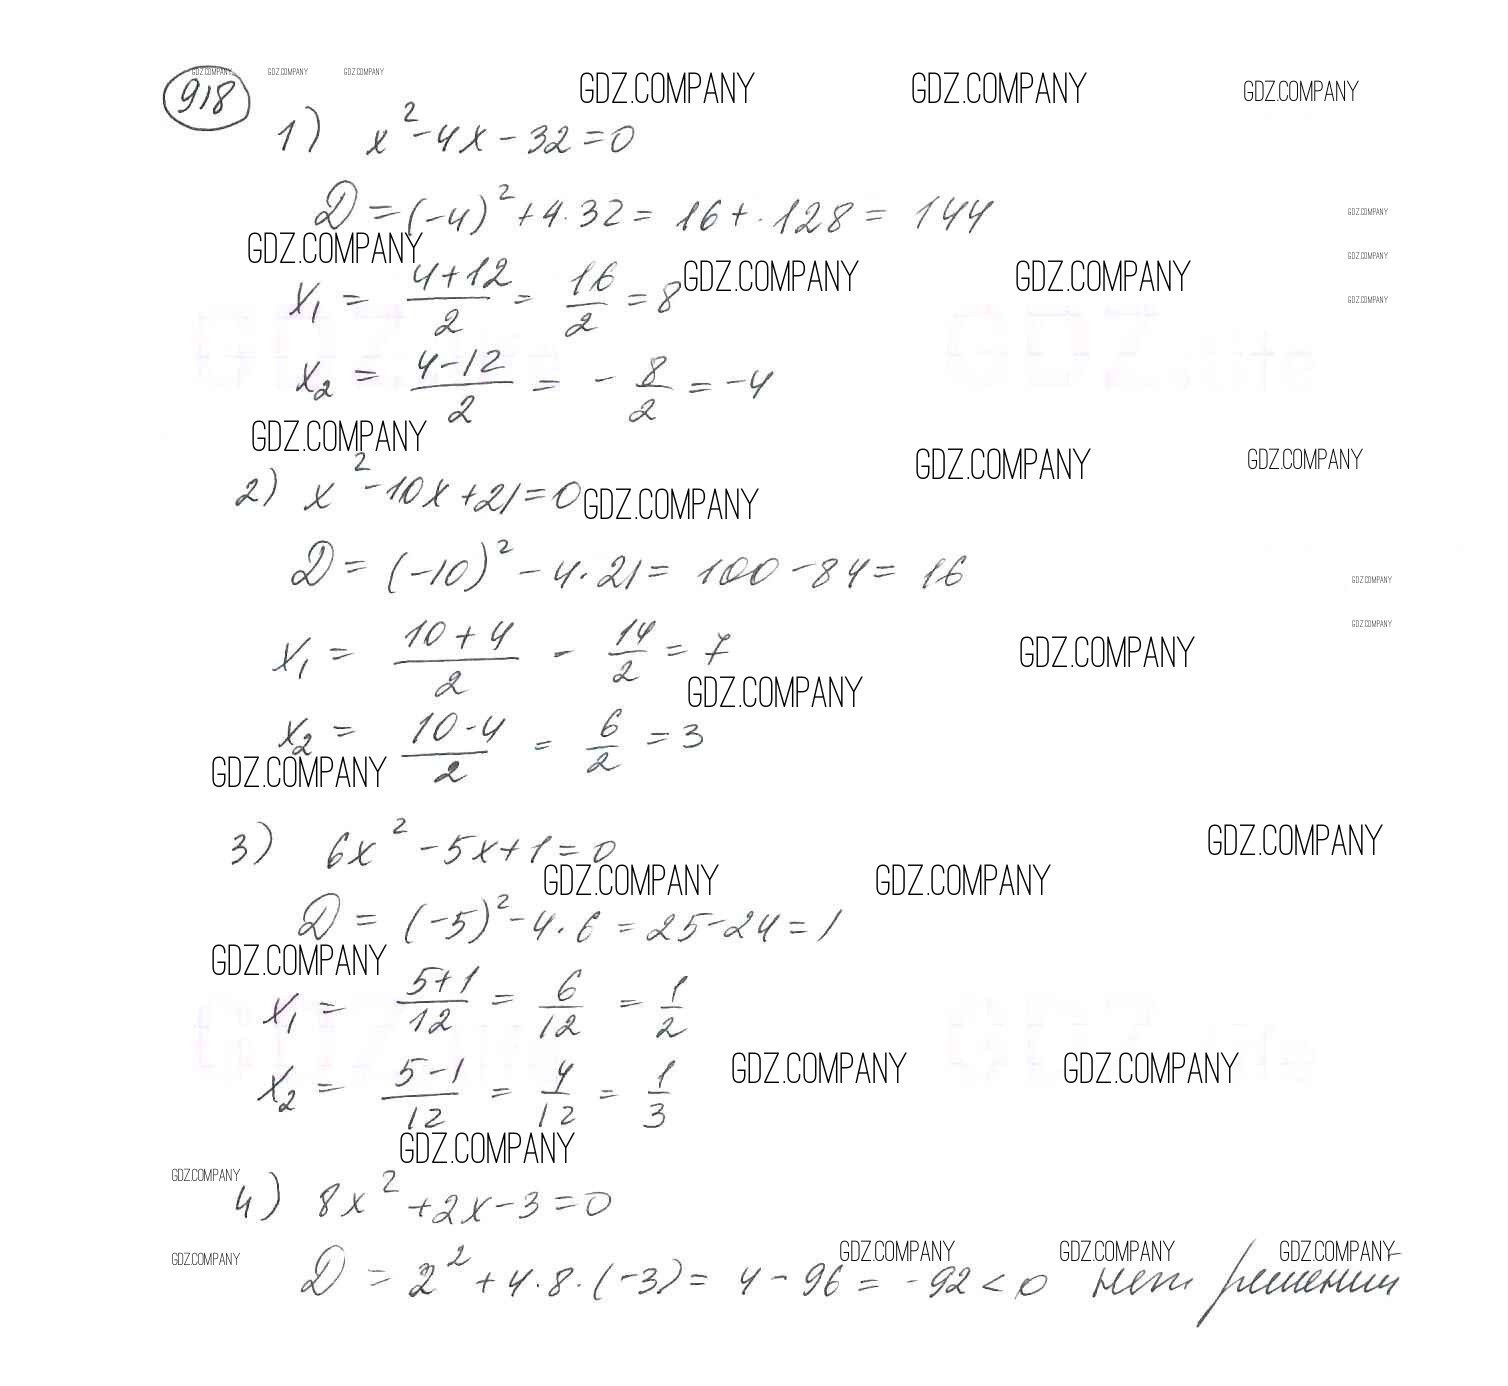 GDZ.COMPANY GDZ.COMPANY GDZ.COMPANY
918 GDZ.COMPANY GDZ.COMPANY GDZ.COMPANY
1) x² - 4x - 32 = 0
D = (-4)² + 4·32 = 16 + · 128 = 144
GDZ.COMPANY
GDZ.COMPANY
GDZ.COMPANY GDZ.COMPANY GDZ.COMPANY
x₁ = (4+12)/2 = 16/2 = 8
GDZ.COMPANY
GDZ.life GDZ.life
x₂ = (4-12)/2 = - 8/2 = -4
GDZ.COMPANY GDZ.COMPANY GDZ.COMPANY
2) x² - 10x + 21 = 0
GDZ.COMPANY
D = (-10)² - 4·21 = 100 - 84 = 16
GDZ.COMPANY
GDZ.COMPANY
x₁ = (10+4)/2 - 14/2 = 7
GDZ.COMPANY
GDZ.COMPANY
x₂ = (10-4)/2 = 6/2 = 3
GDZ.COMPANY
3) 6x² - 5x + 1 = 0
GDZ.COMPANY
GDZ.COMPANY GDZ.COMPANY
D = (-5)² - 4·6 = 25 - 24 = 1
GDZ.COMPANY
x₁ = (5+1)/12 = 6/12 = 1/2
GDZ.life GDZ.life
x₂ = (5-1)/12 = 4/12 = 1/3
GDZ.COMPANY GDZ.COMPANY
GDZ.COMPANY
GDZ.COMPANY
4) 8x² + 2x - 3 = 0
GDZ.COMPANY GDZ.COMPANY GDZ.COMPANY GDZ.COMPANY
D = 2² + 4·8·(-3) = 4 - 96 = -92 < 0 нет решений